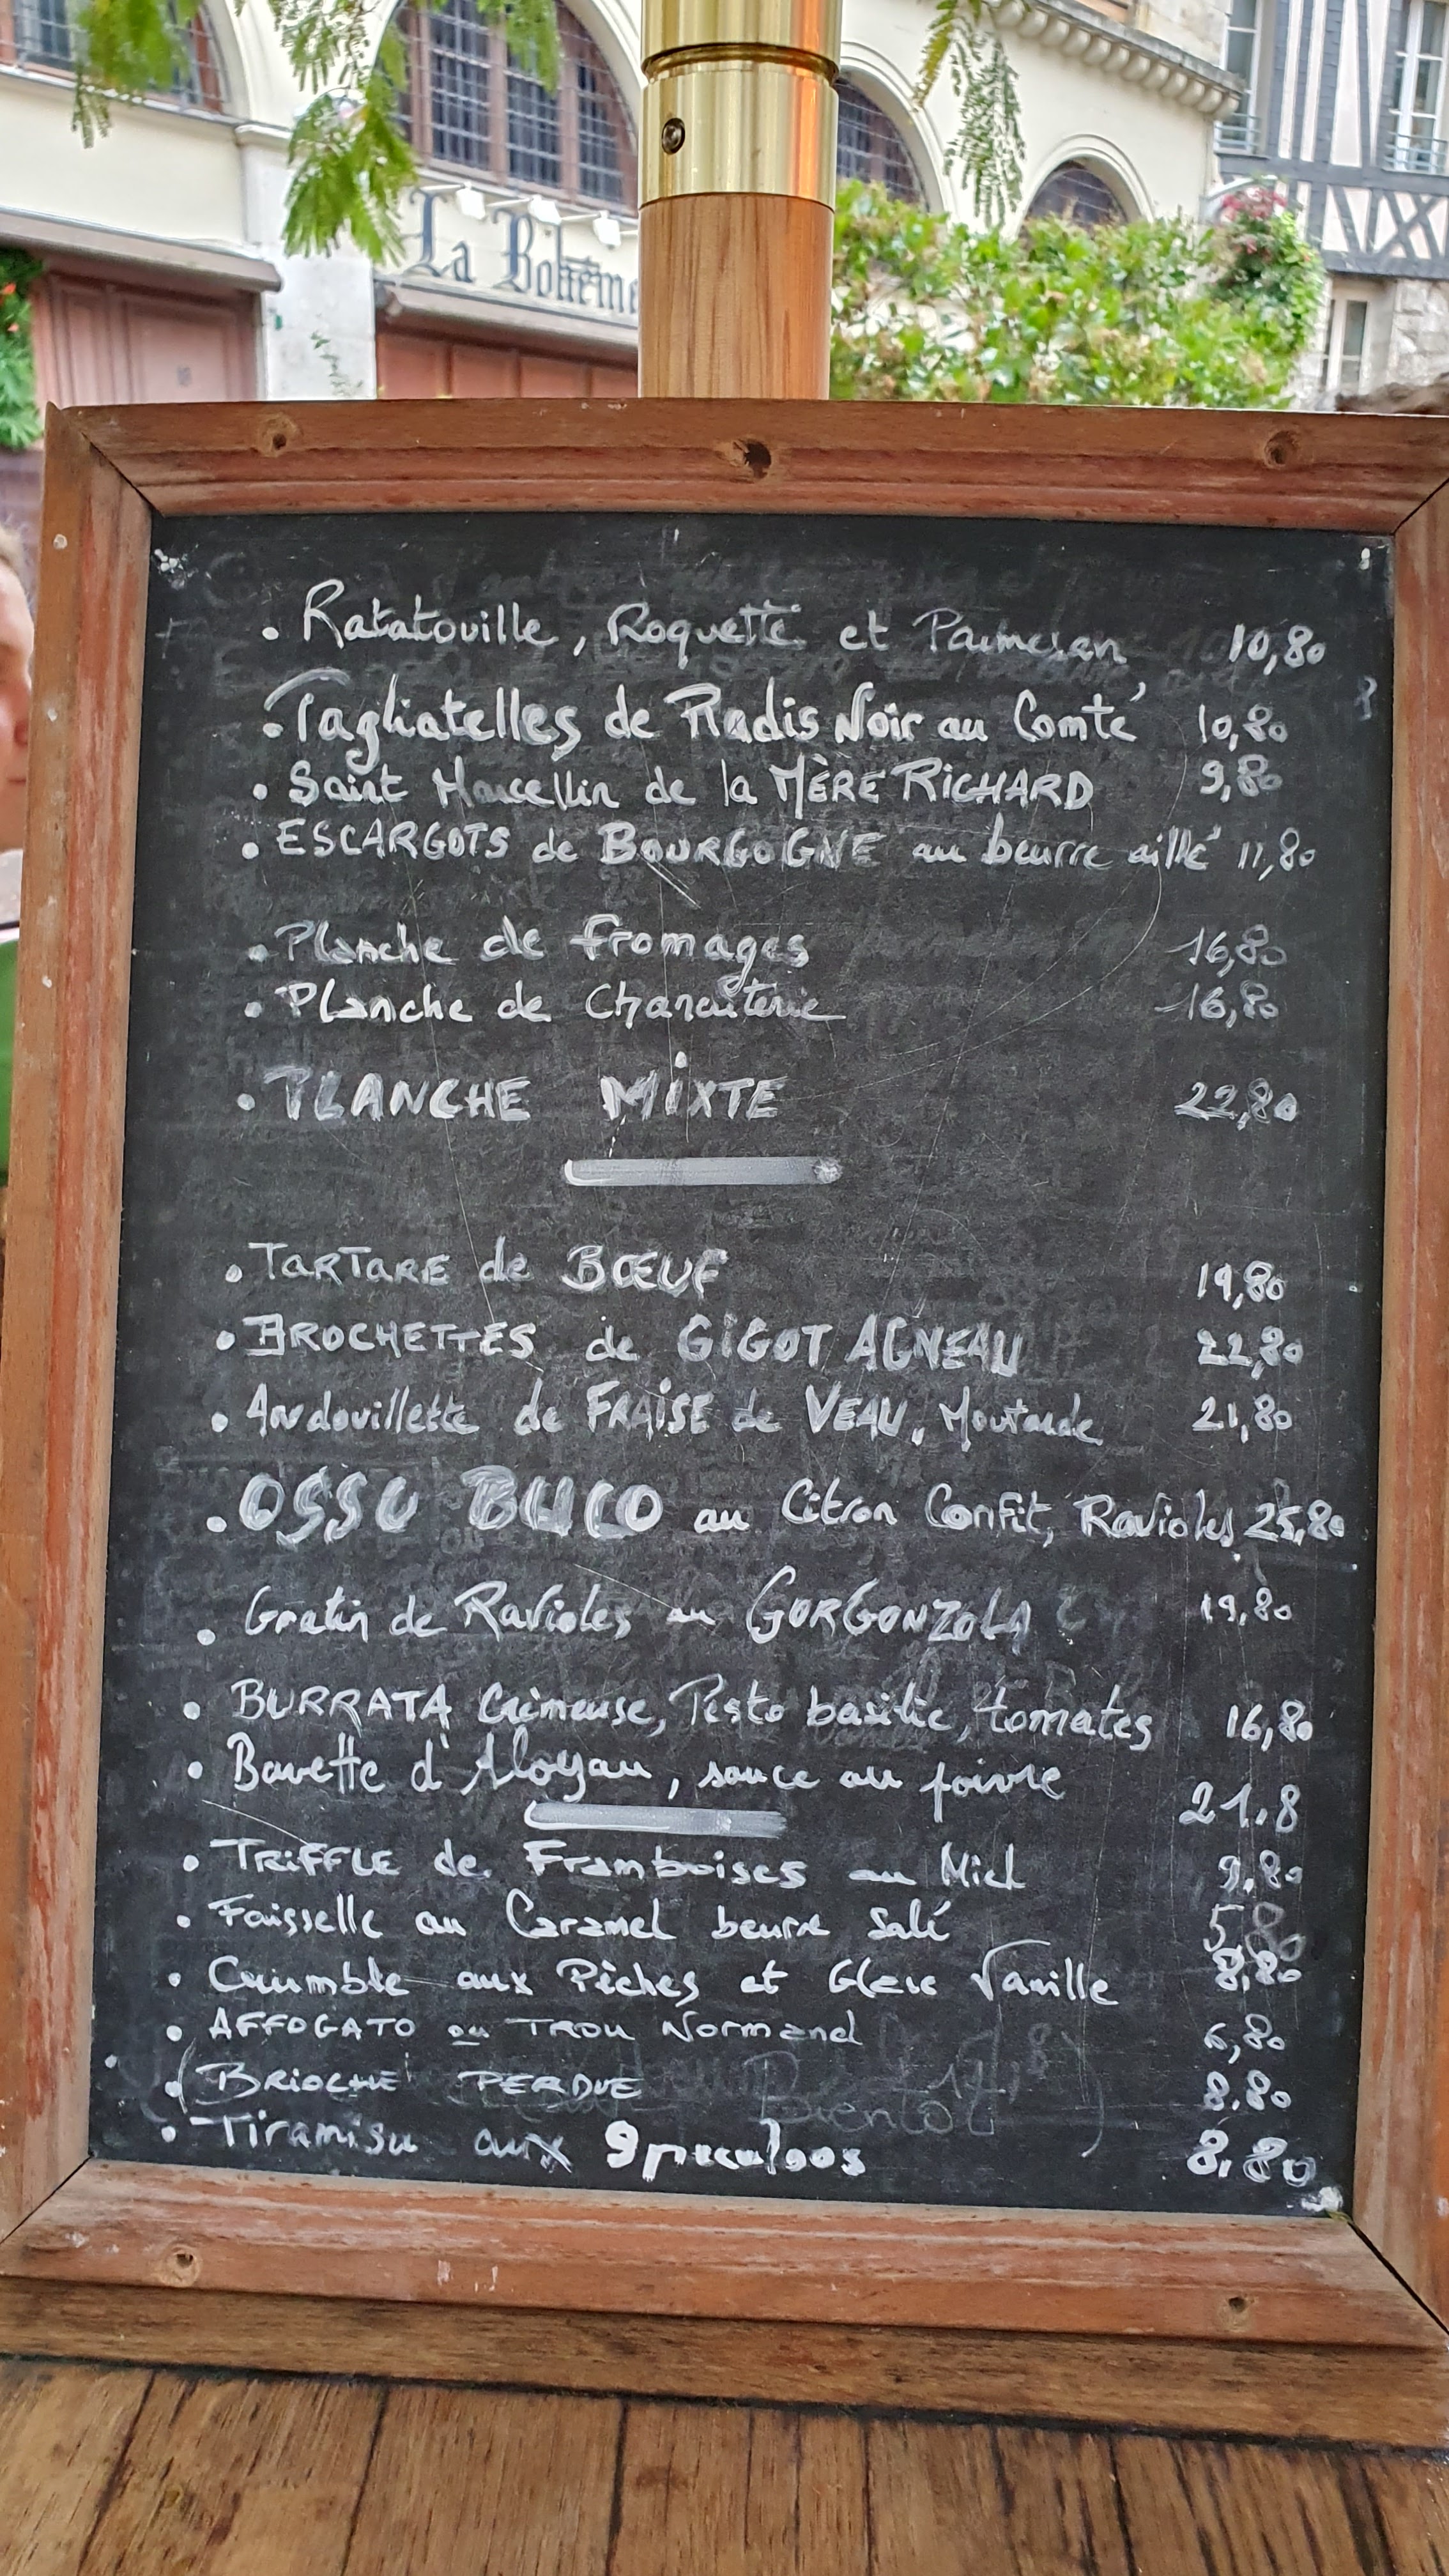 La Bohême
. Ratatouille, Roquette et Parmesan 10,80
. Tagliatelles de Radis Noir au Comté 10,80
. Saint Marcellin de la MÈRE RICHARD 9,80
. ESCARGOTS de BOURGOGNE au beurre aillé 11,80
. Planche de fromages 16,80
. Planche de Charcuterie 16,80
. PLANCHE MiXTE 22,80
. TARTARE de BŒUF 19,80
. BROCHETTES de GiGOT AGNEAU 22,80
. Andouillette de FRAiSE de VEAU, Moutarde 21,80
. OSSO BUCO au Citron Confit, Ravioles 25,80
. Gratin de Ravioles au GORGONZOLA 19,80
. BURRATA Crémeuse, Pesto basilic, tomates 16,80
. Bavette d'Aloyau, sauce au poivre 21.8
. TRiFFLE de Framboises au Miel 9,80
. Faisselle au Caramel beurre Salé 5,80
. Crumble aux Pêches et Glace Vanille 8,80
. AFFOGATO ou TROU Normand 6,80
. (BRiOCHE PERDUE Bientôt) 8.80
. Tiramisu aux Speculoos 8.80